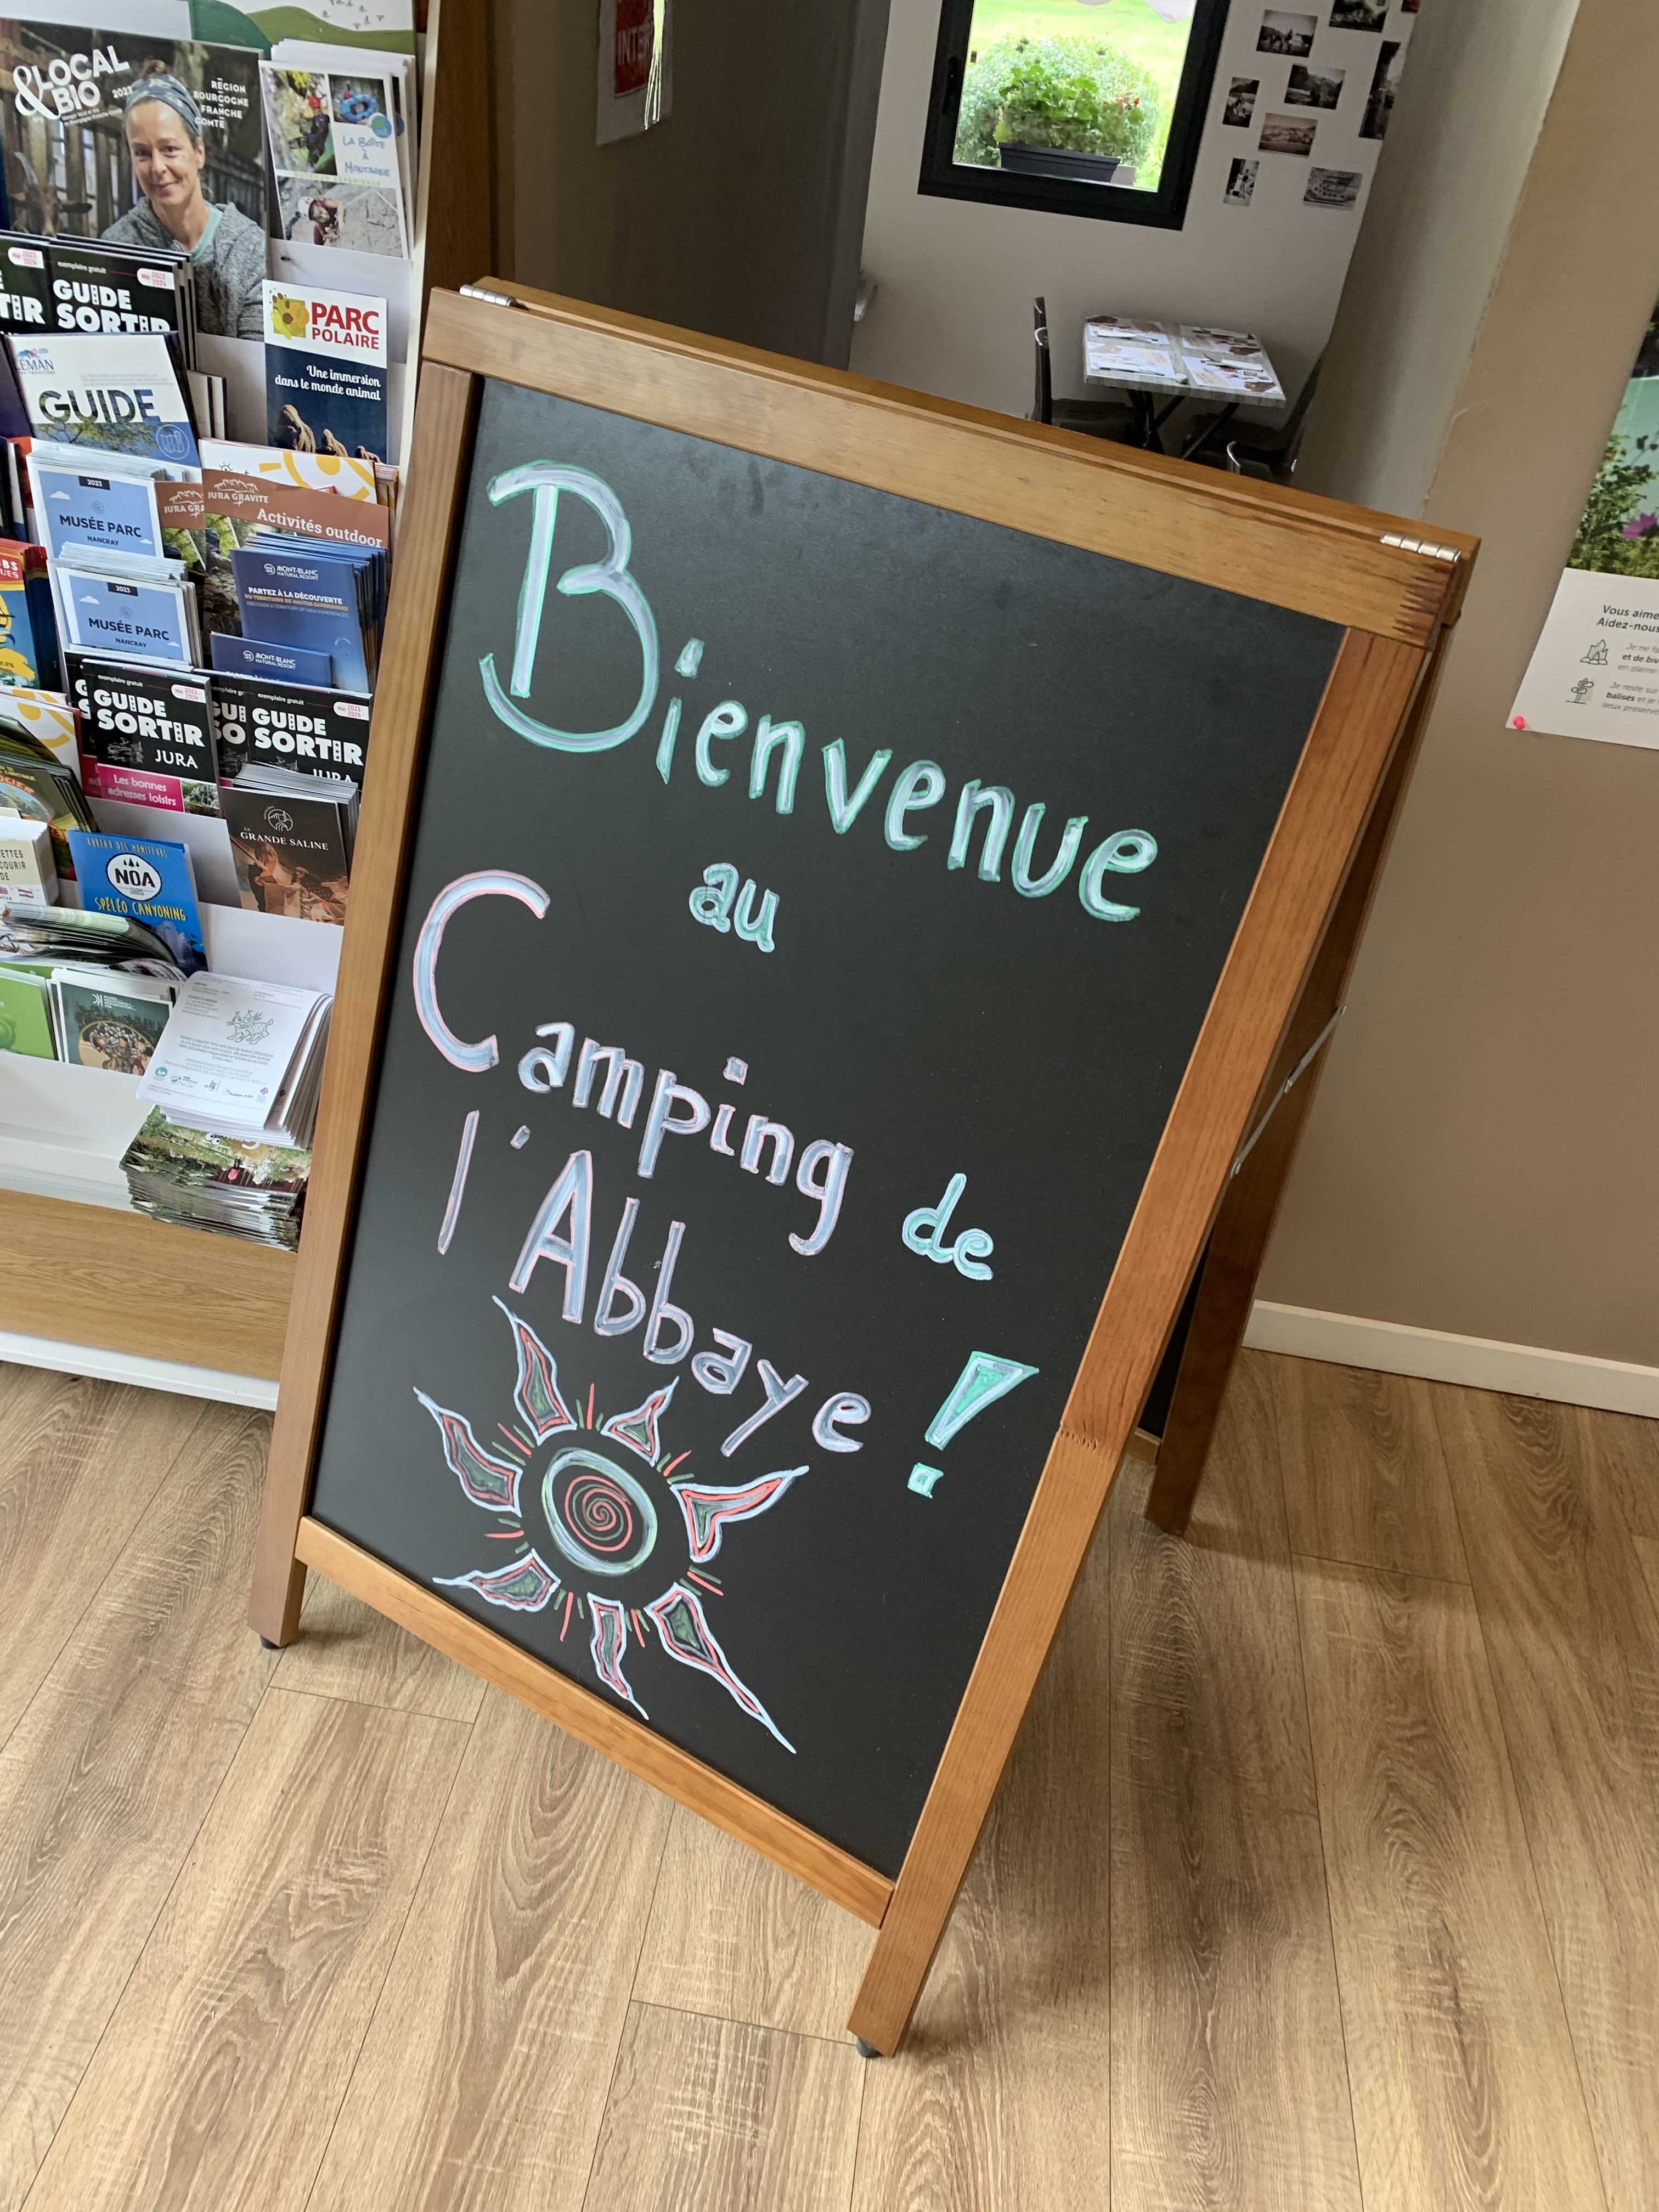 Bienvenue
au
Camping de
l'Abbaye !
&LOCAL
BIO 2023
RÉGION
BOURGOGNE
FRANCHE
COMTÉ
LA BOÎTE
À
MONTAGNE
exemplaire gratuit
GUIDE
SORTIR
PARC
POLAIRE
Une immersion
dans le monde animal
GUIDE
2023
MUSÉE PARC
NANCRAY
JURA GRAVITE
Activités outdoor
MONT-BLANC
NATURAL RESORT
PARTEZ À LA DÉCOUVERTE
DU TERRITOIRE DE HAUTES EXPÉRIENCES
DISCOVER A TERRITORY OF HIGH EXPERIENCES
2023
MUSÉE PARC
NANCRAY
MONT-BLANC
NATURAL RESORT
exemplaire gratuit
GUIDE
SORTIR
JURA
Les bonnes
adresses loisirs
exemplaire gratuit
GUIDE
SORTIR
JURA
LA
GRANDE SALINE
BUREAU DES MONITEURS
NOA
SPÉLÉO CANYONING
Vous aime
Aidez-nous
Je ne fa
et de biv
en pleine
Je reste sur
balisés et je
lieux préservé